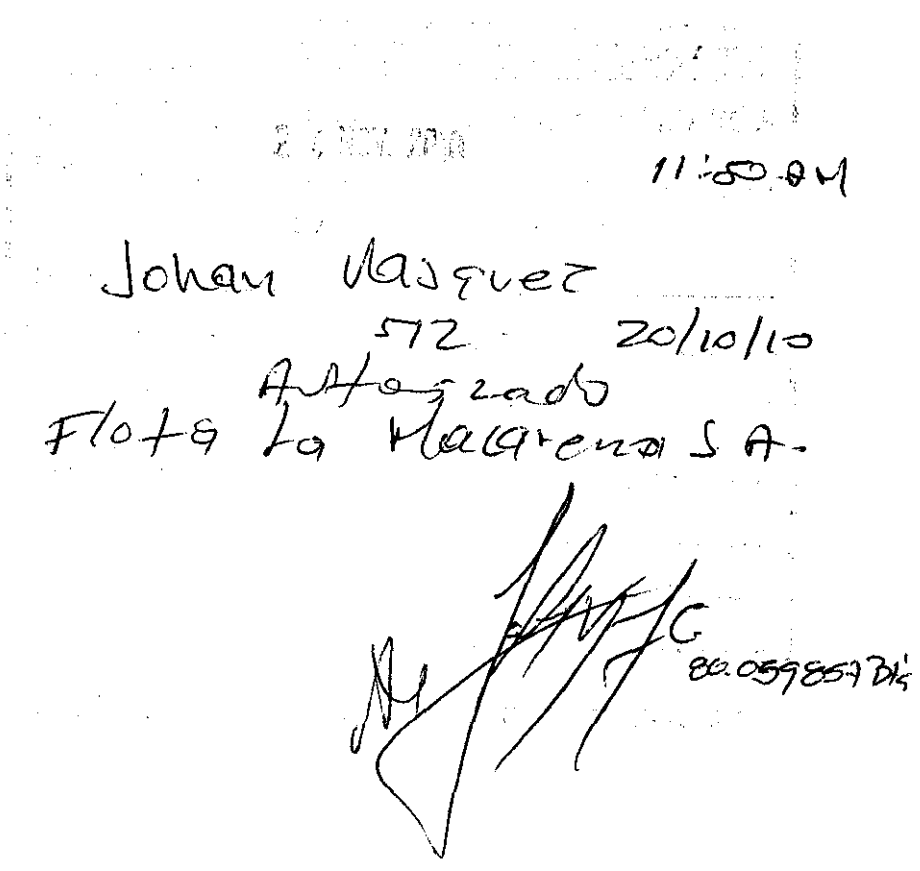 11:50 AM
Johan Vasquez
512 20/10/10
Autorizado
Flota La Macarena S A.
80.059857 Bta